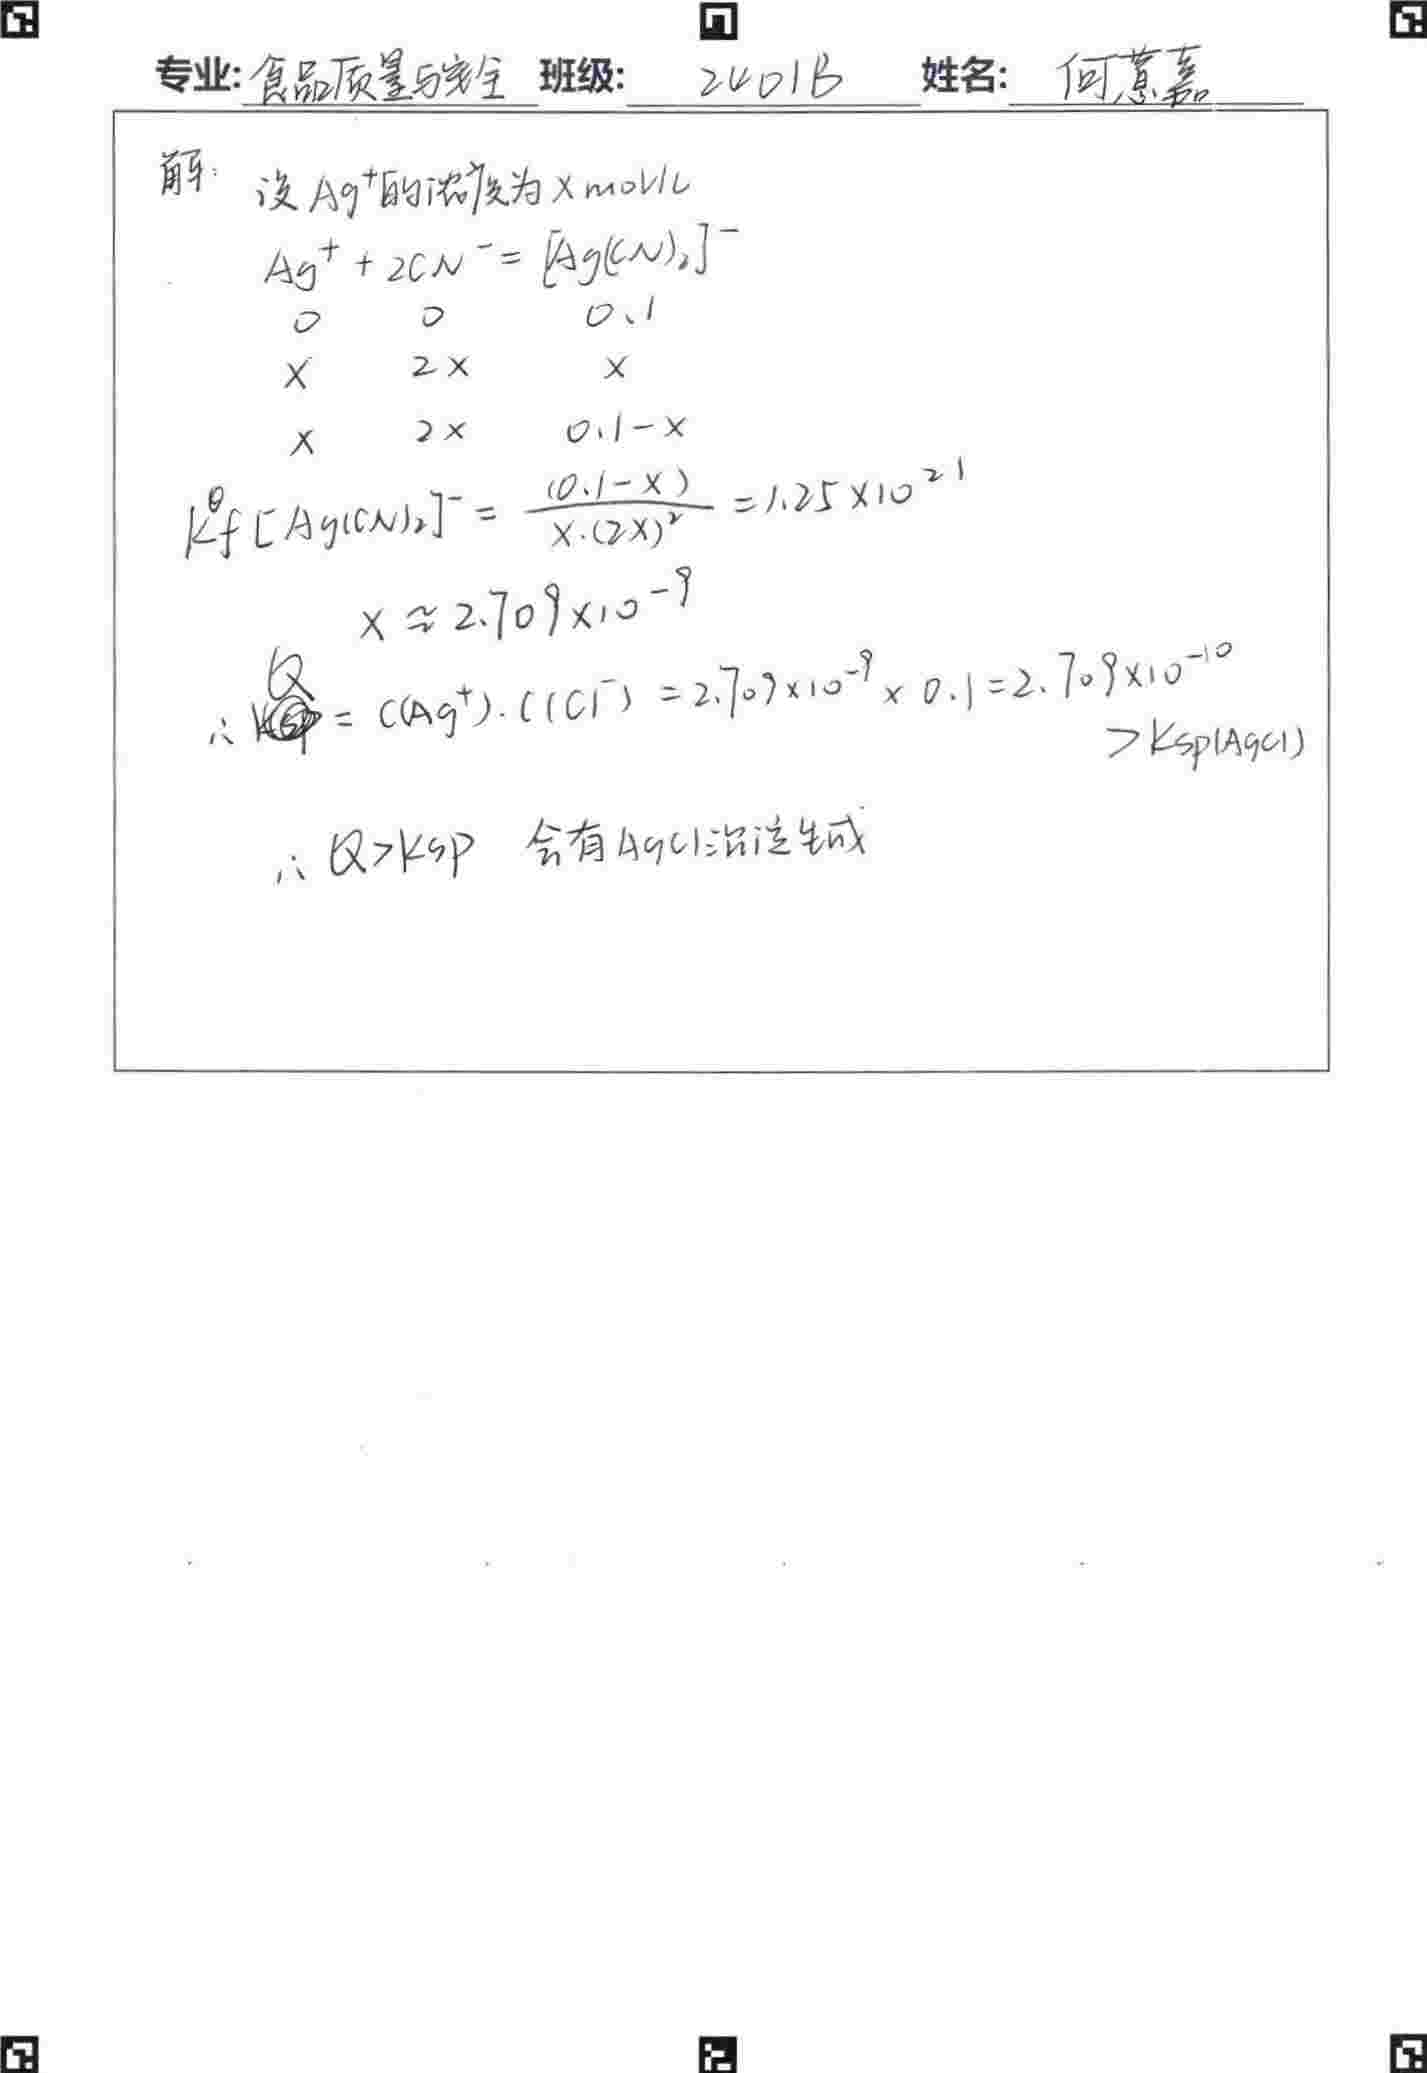 专业: 食品质量与安全 班级: 2401B 姓名: 何薏嘉
解: 设Ag⁺的浓度为 x mol/L
Ag⁺ + 2CN⁻ = [Ag(CN)₂]⁻
0 0 0.1
x 2x x
x 2x 0.1-x
K^θf [Ag(CN)₂]⁻ = (0.1-x) / x·(2x)² = 1.25×10²¹
x ≈ 2.709×10⁻⁹
∴ Q = C(Ag⁺)·C(Cl⁻) = 2.709×10⁻⁹ × 0.1 = 2.709×10⁻¹⁰
> Ksp(AgCl)
∴ Q>Ksp 会有AgCl沉淀生成